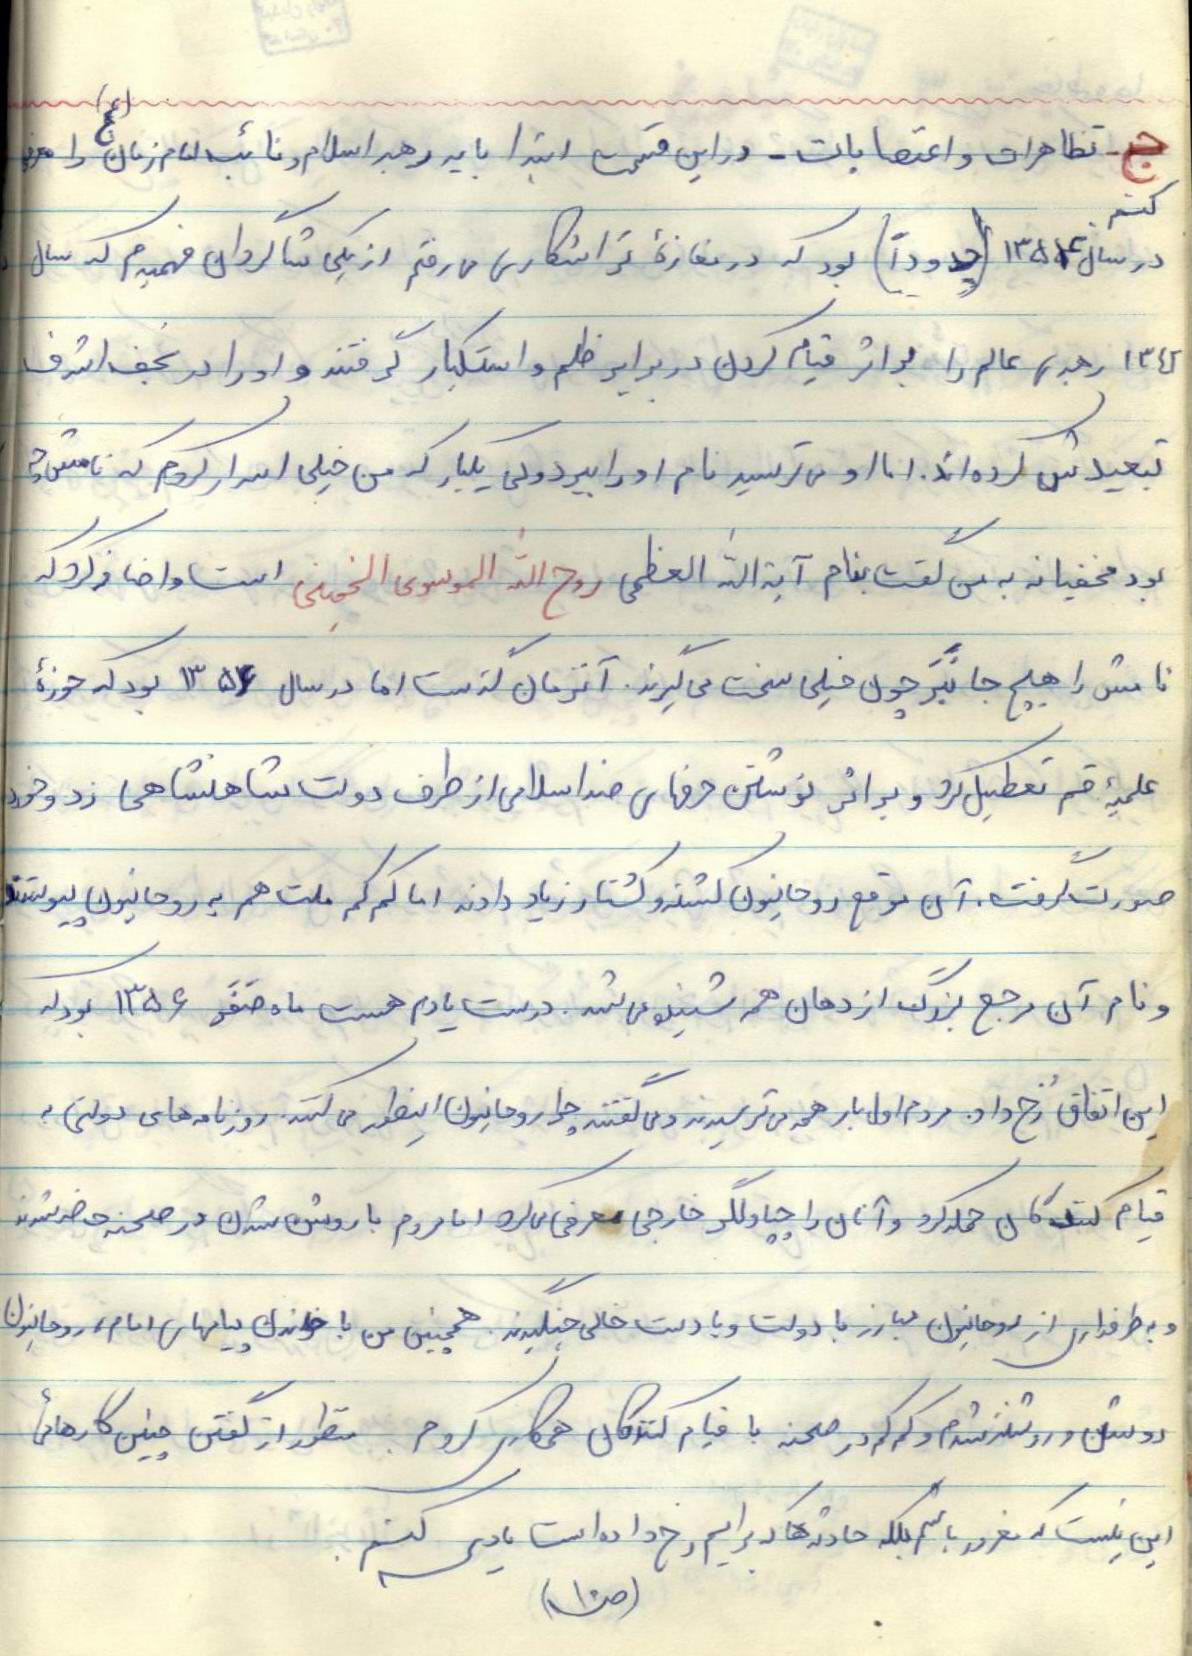 (عج)
ج - تظاهرات و اعتصابات - در این قسمت ابتدا باید رهبر اسلام و نائب امام زمان را معرفی
کنم
در سال ۱۳۵۴ (حدوداً) بود که در مغازهٔ تراشکاری می رفتم از یکی شاگردان فهمیدم که سال
۱۳۴۲ رهبری عالم را بر اثر قیام کردن در برابر ظلم و استکبار گرفتند و او را در نجف اشرف
تبعیدش کرده اند. اما او می ترسید نام او را ببرد ولی یکبار که من خیلی اسرار کردم که نامش چه
بود مخفیانه به من گفت بنام آیة الله العظمی روح الله الموسوی الخمینی است و اضافه کرد که
نامش را هیچ جا نَبَر چون خیلی سخت می گیرند. آنزمان گذشت اما در سال ۱۳۵۶ بود که حوزهٔ
علمیهٔ قم تعطیل کرد و بر اثر نوشتن حرفهای ضد اسلامی از طرف دولت شاهنشاهی زد و خورد
صورت گرفت. آن موقع روحانیون کشته و کشتار زیاد دادند اما کم کم ملت هم به روحانیون پیوستند
و نام آن مرجع بزرگ از دهان همه شنیده می شد. درست یادم هست ماه صَفَر ۱۳۵۶ بود که
این اتفاق رُخ داد. مردم اول بار همه می ترسیدند و می گفتند چرا روحانیون اینطور می کنند. روزنامه های دولتی به
قیام کنندگان حمله کرد و آنان را چپاولگر خارجی معرفی می کرد اما مردم با روشن شدن در صحنه حاضر شدند
و به طرفداری از روحانیون مبارز با دولت و با دست خالی جنگیدند. همچنین من با خواندن پیامهای امام، روحانیون
روشن و روشنتر شدم و کم کم در صحنه با قیام کنندگان همکاری کردم. منظور از گفتن چنین کارهائی
این نیست که مغرور باشم بلکه حادثه ها که برایم رخ داده است یاد می کنم.
(ص۱۰)